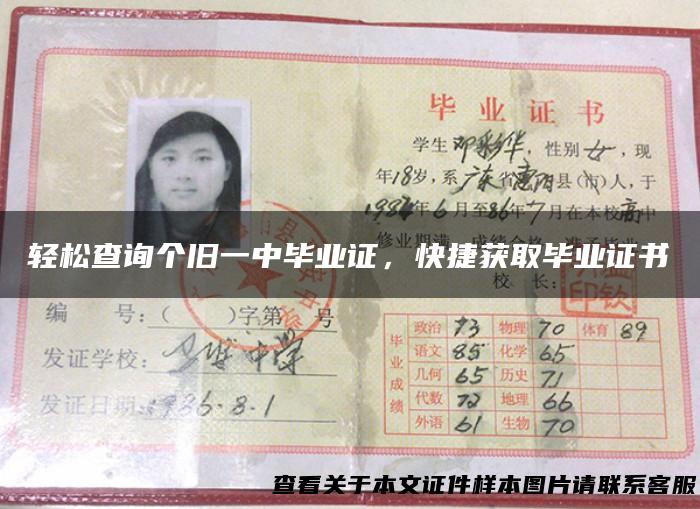 毕业证书
学生邓彩华，性别女，现
年18岁，系广东省惠阳县(市)人，于
1984年6月至86年7月在本校高中
修业期满
轻松查询个旧一中毕业证，快捷获取毕业证书
校长：
编 号：( )字第 号
发证学校： 中学
发证日期：1986.8.1
毕业成绩
政治 73 物理 70 体育 89
语文 85 化学 65
几何 65 历史 71
代数 72 地理 66
外语 61 生物 70
查看关于本文证件样本图片请联系客服